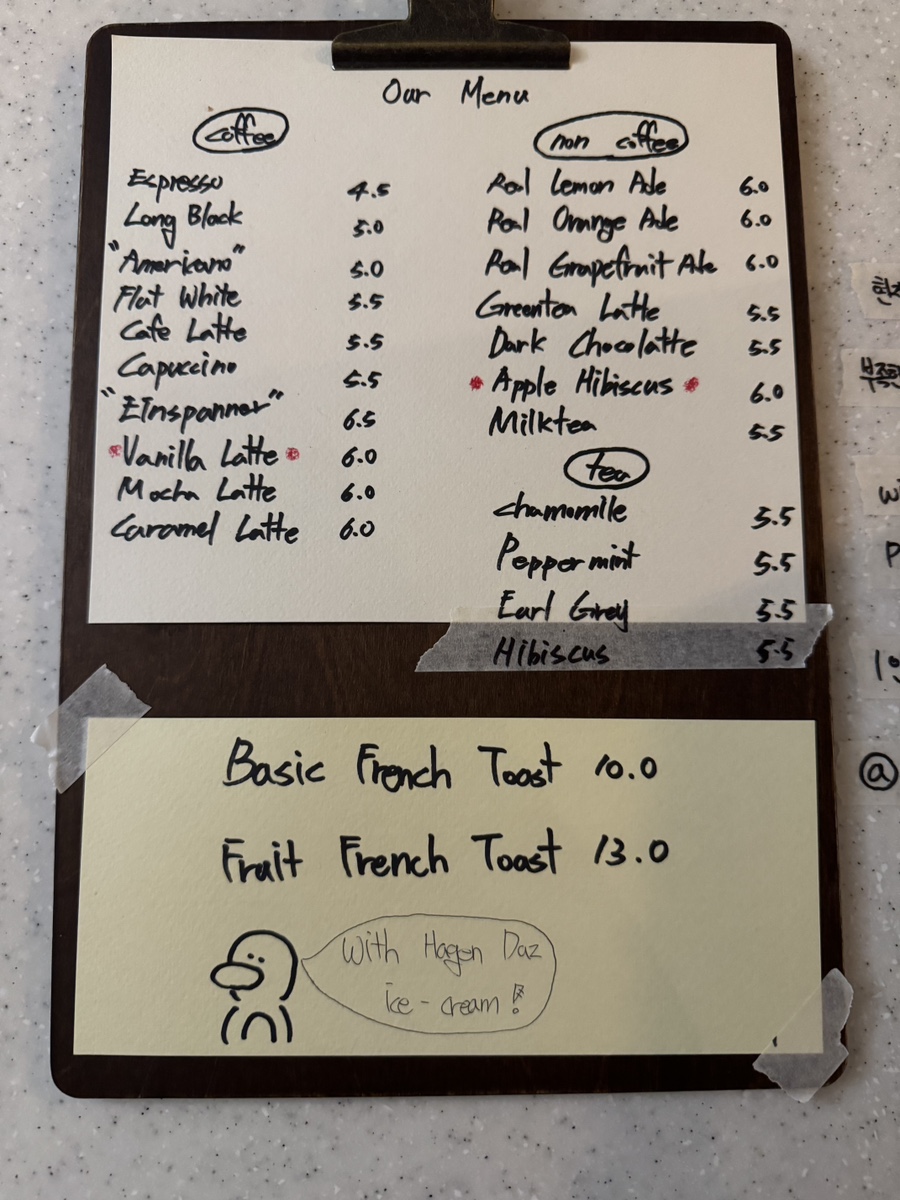 Our Menu
coffee
Espresso 4.5
Long Black 5.0
"Americano" 5.0
Flat White 5.5
Cafe Latte 5.5
Capuccino 5.5
"EInspanner" 6.5
Vanilla Latte 6.0
Mocha Latte 6.0
Caramel Latte 6.0
non coffee
Real Lemon Ade 6.0
Real Orange Ade 6.0
Real Grapefruit Ade 6.0
Greentea Latte 5.5
Dark Chocolatte 5.5
Apple Hibiscus 6.0
Milktea 5.5
tea
chamomile 5.5
Peppermint 5.5
Earl Grey 5.5
Hibiscus 5.5
Basic French Toast 10.0
Fruit French Toast 13.0
With Hagen Daz
ice-cream!